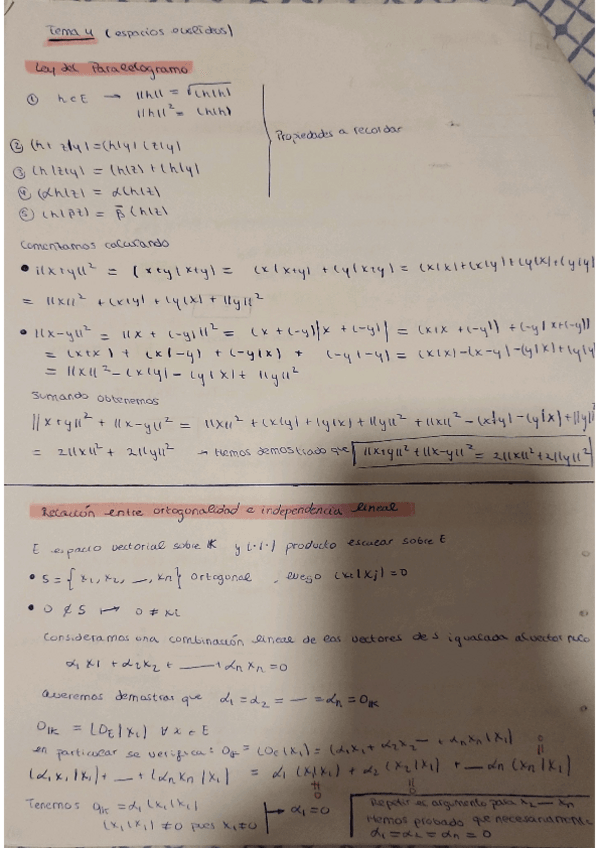 Tema 4 (espacios euclideos)
Ley del Paralelogramo
① h∈E → ||h|| = √(h|h)
||h||² = (h|h)
② (h+z|y) = (h|y) (z|y)
Propiedades a recordar
③ (h|z|y) = (h|z) + (h|y)
④ (αh|z) = α(h|z)
⑤ (h|βz) = β̄ (h|z)
Comenzamos calculando
• ||x+y||² = (x+y|x+y) = (x|x+y) + (y|x+y) = (x|x)+(x|y)+(y|x)+(y|y)
= ||x||² + (x|y) + (y|x) + ||y||²
• ||x-y||² = ||x + (-y)||² = (x+(-y)|x + (-y)) = (x|x+(-y)) + (-y|x+(-y))
= (x+x) + (x|-y) + (-y|x) + (-y|-y) = (x|x)-(x-y)-(y|x)+(y|y)
= ||x||² - (x|y) - (y|x) + ||y||²
Sumando obtenemos
||x+y||² + ||x-y||² = ||x||² + (x|y) + (y|x) + ||y||² + ||x||² - (x|y) - (y|x) + ||y||²
= 2||x||² + 2||y||² → Hemos demostrado que ||x+y||² + ||x-y||² = 2||x||² + 2||y||²
Relación entre ortogonalidad e independencia lineal
E espacio vectorial sobre K y (·|·) producto escalar sobre E
• S = {x₁, x₂, —, xₙ} ortogonal , luego (xi|xj) = 0
• 0 ∉ S ↦ 0 ≠ xi
Consideramos una combinación lineal de los vectores de S igualada al vector nulo
α₁x1 + α₂x₂ + —— + αₙxₙ = 0
Queremos demostrar que α₁ = α₂ = — = αₙ = 0_K
0_K = (0_E|x₁) ∀ x ∈ E
en particular se verifica: 0_K = (0_E|x₁) = (α₁x₁ + α₂x₂ — + αₙxₙ|x₁)
(α₁x₁|x₁) + — + (αₙxₙ|x₁) = α₁(x₁|x₁) + α₂(x₂|x₁) + — αₙ(xₙ|x₁)
Tenemos 0_K = α₁(x₁|x₁)
(x₁|x₁) ≠ 0 pues x₁ ≠ 0
→ α₁ = 0
Repetir el argumento para x₂ — xₙ
Hemos probado que necesariamente
α₁ = α₂ = αₙ = 0